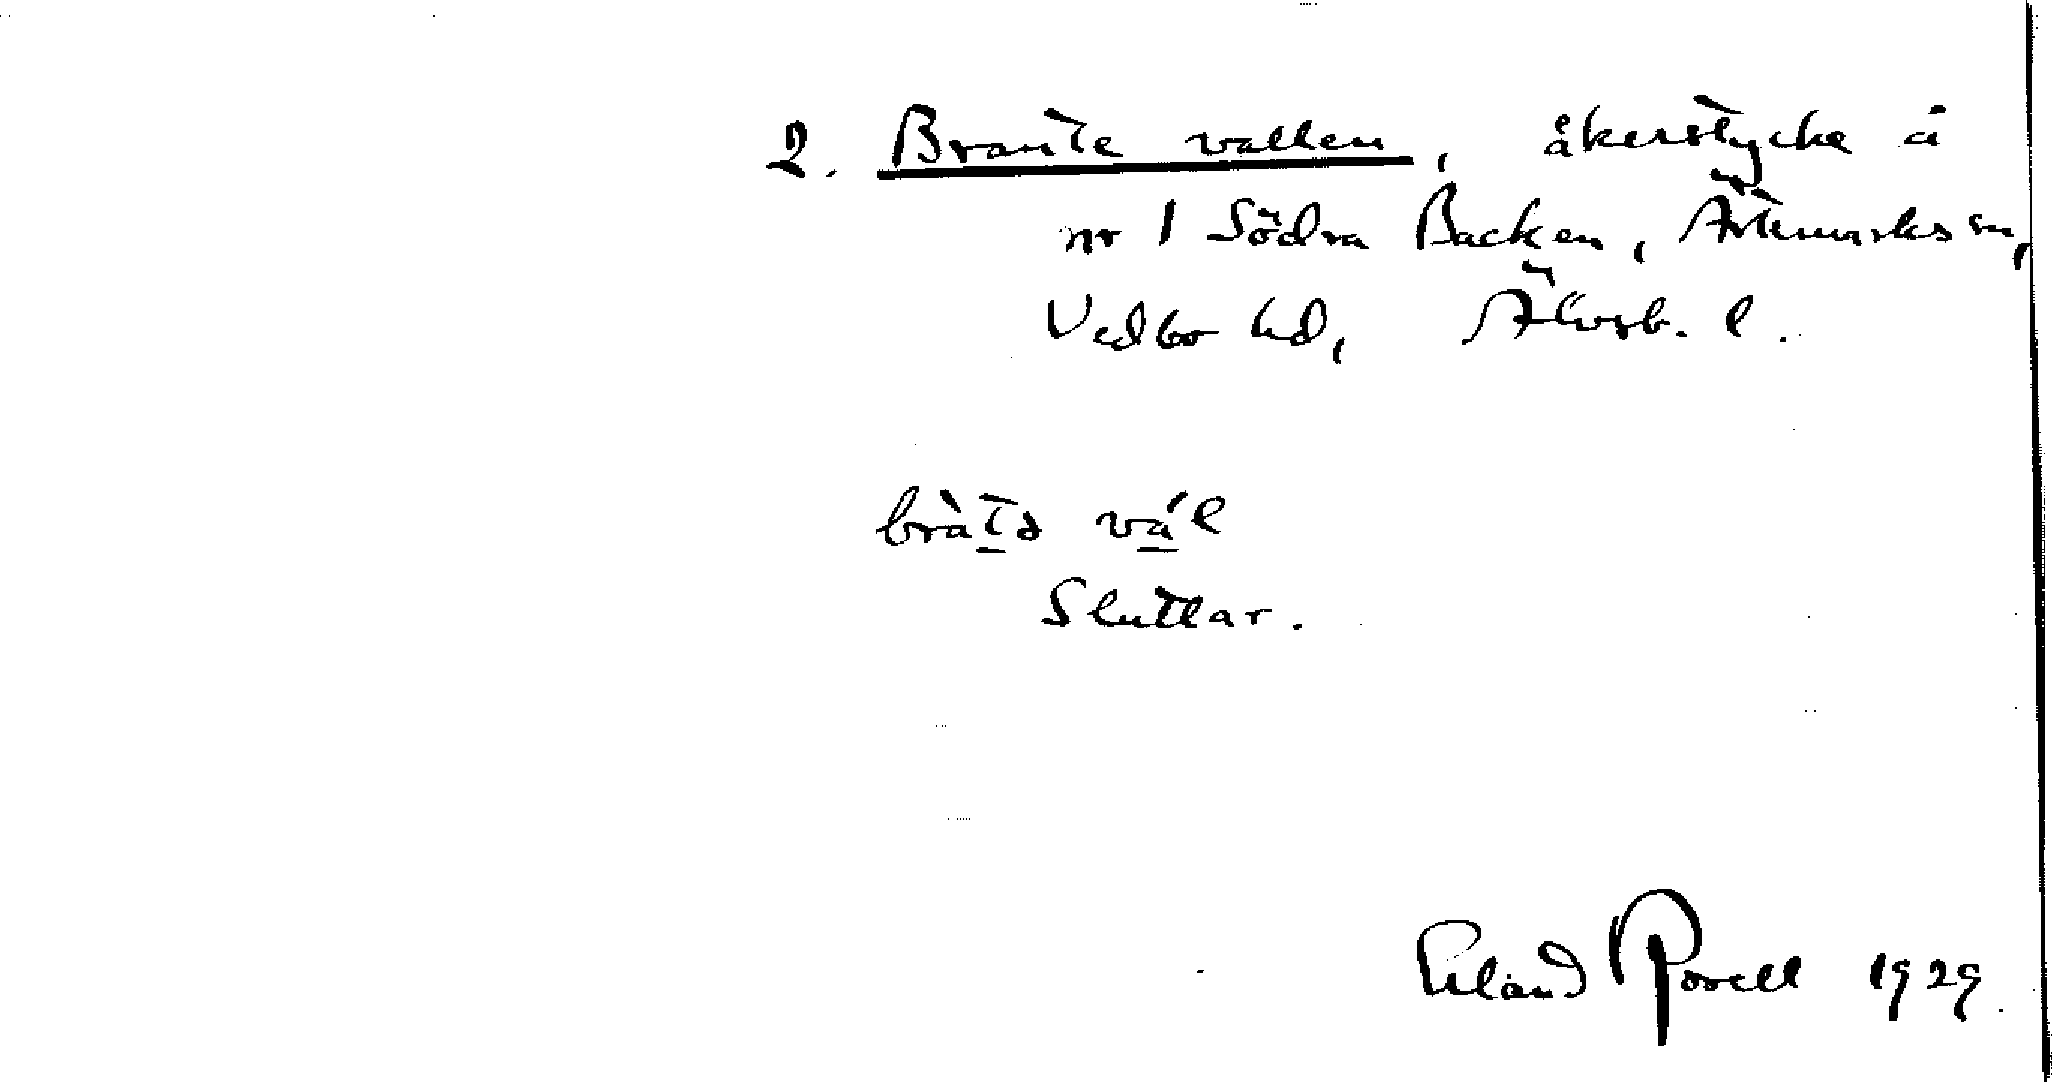 2. Brante vallen, åkerstycke å
nr 1 Södra Backen, Ärtemarks sn,
Vedbo hd, Älvsb. l.
bràt̠ə vá̠l
Sluttar.
Erland Rosell 1929